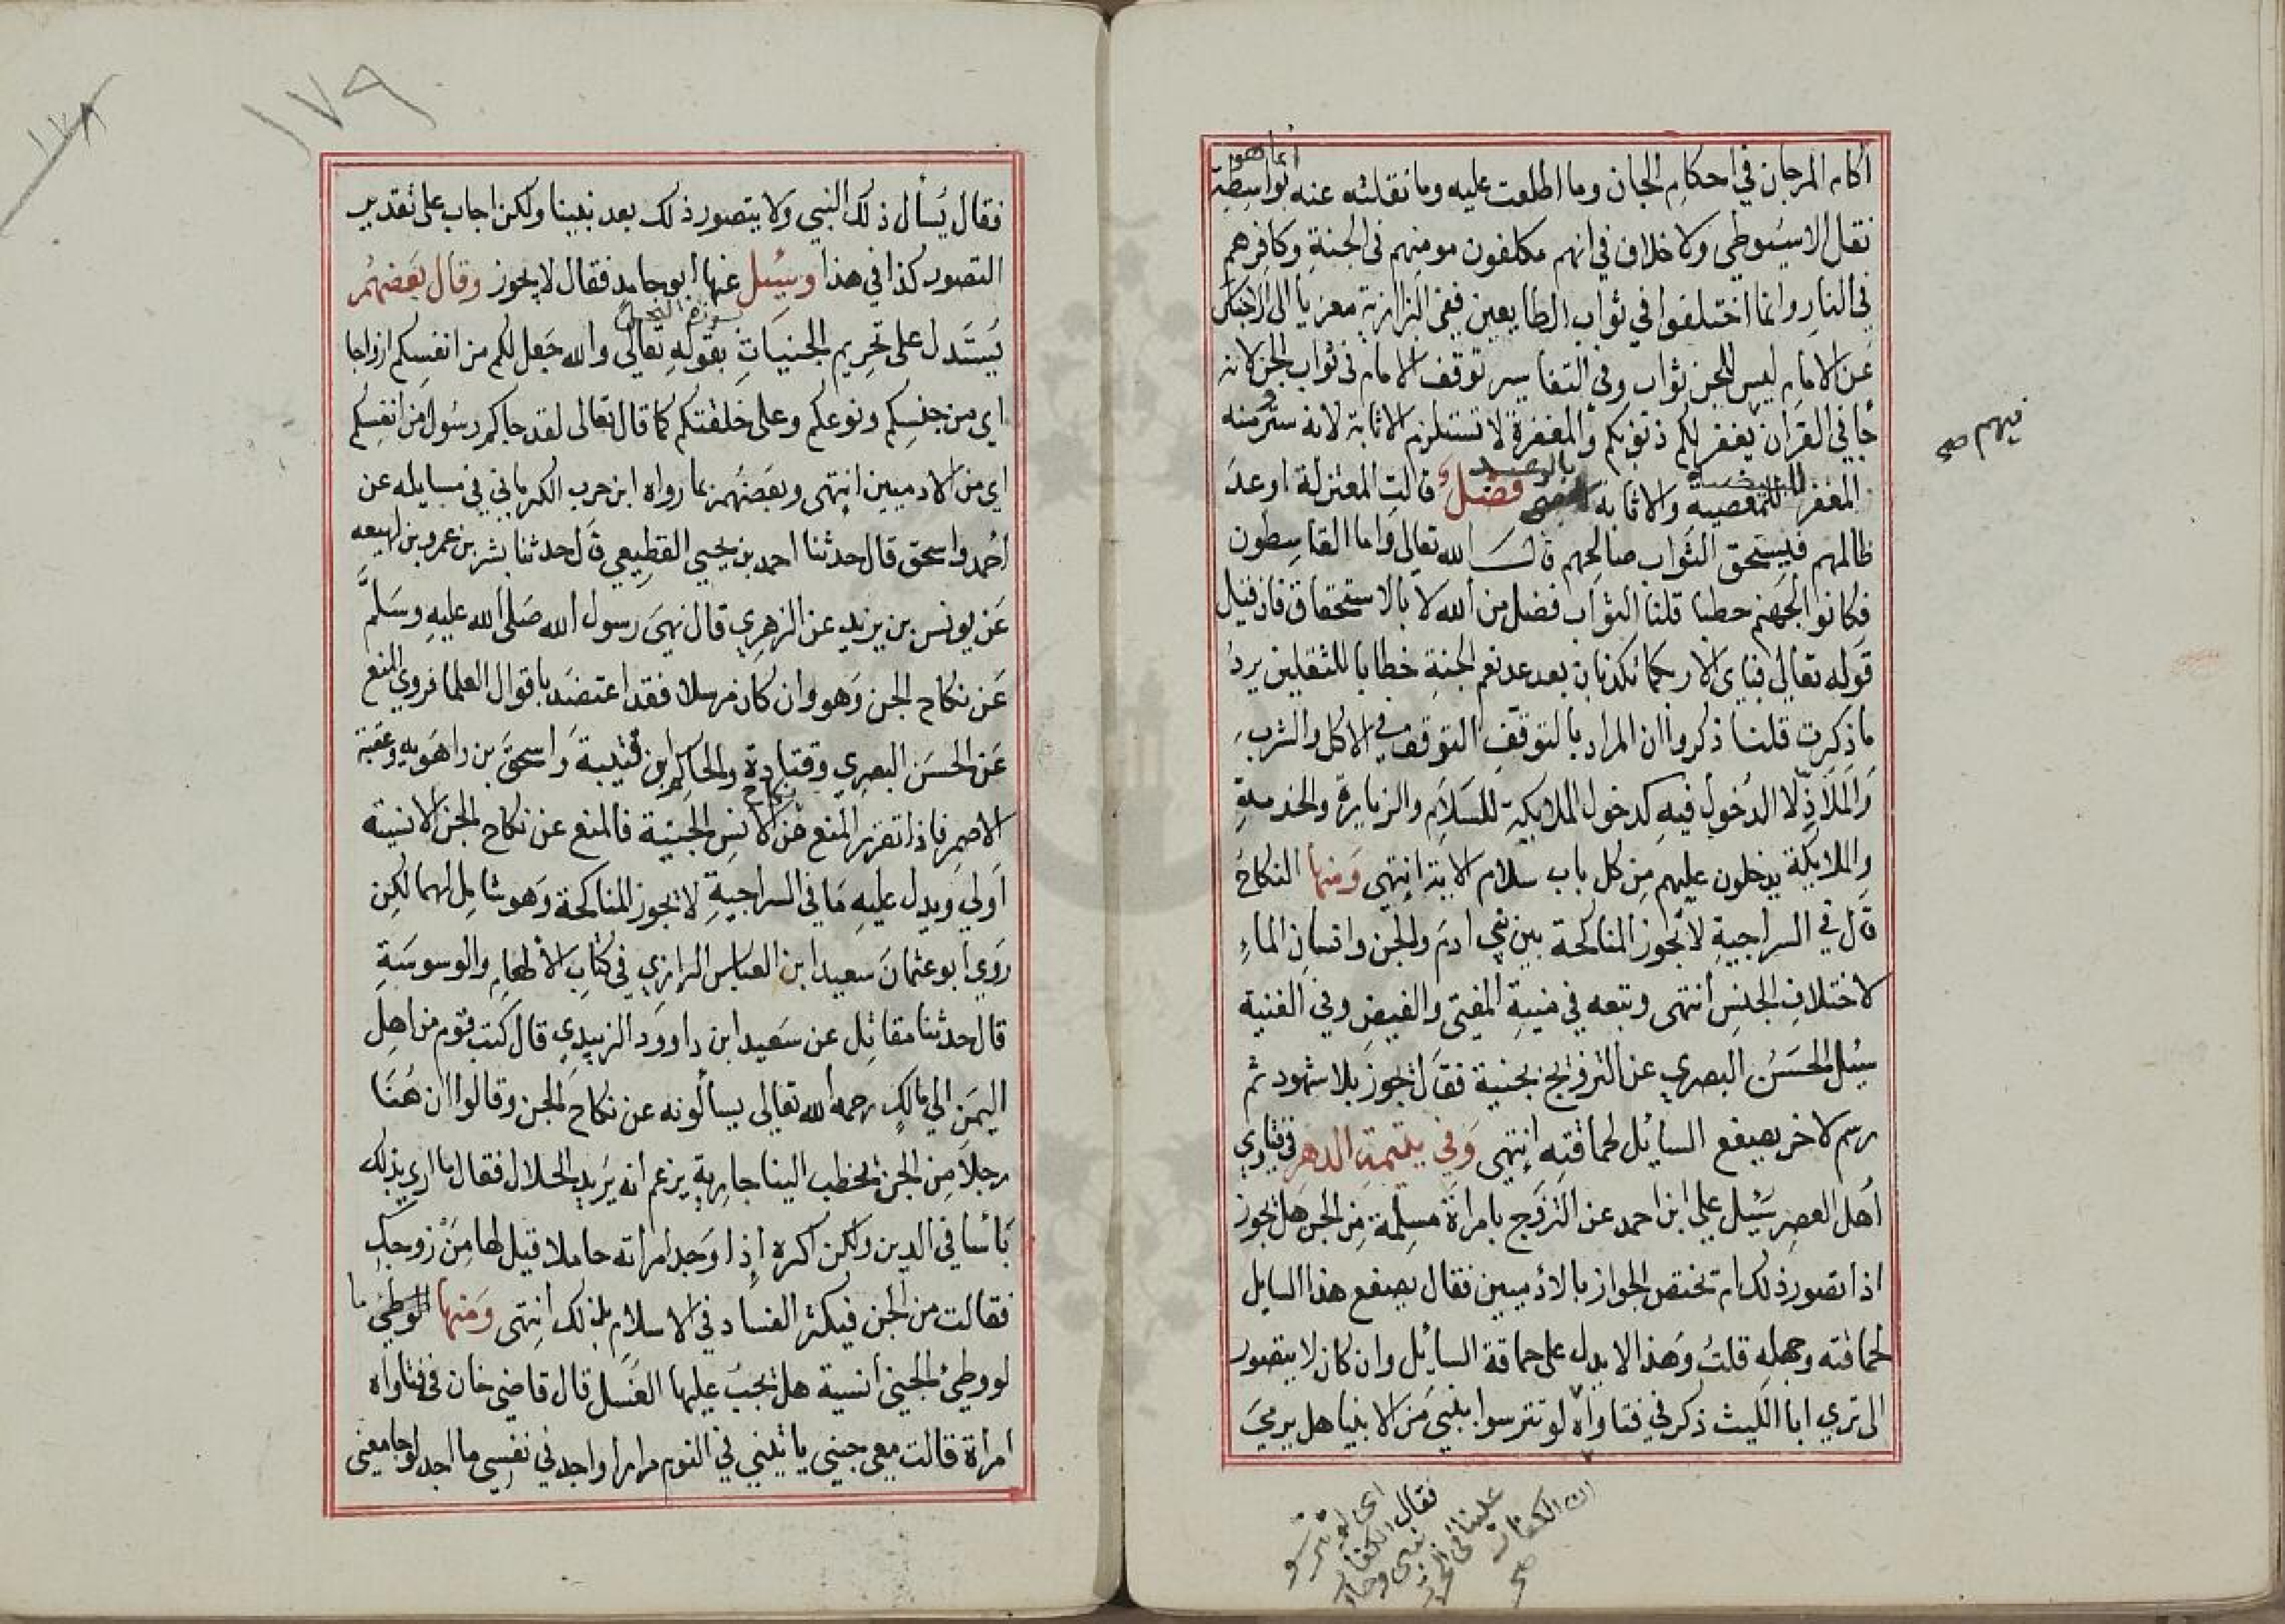 أكام المرجان في احكام الجان وما اطلعت عليه وما نقلته عنه انما هو بواسطة
نقل الاسيوطي ولا خلاف في انهم مكلفون مومنهم في الجنة وكافرهم
في النار وانما اختلفوا في ثواب الطايعين ففي البزازية معزيا الى الاجناس
عن الامام ليس للجن ثواب وفي التفاسير توقف الامام في ثواب الجن لانه
جا في القران يغفر لكم ذنوبكم والمغفرة لا تستلزم الاثابة لانه ستر ومنه
المغفر للبيضة والاثابة بالوعد فضل قالت المعتزلة اوعد
ظالمهم فيستحق الثواب صالحهم قال الله تعالى واما القاسطون
فكانوا لجهنم حطبا قلنا الثواب فضل من الله لا بالاستحقاق فان قيل
قوله تعالى فباي الا ربكما تكذبان بعد عد نعم الجنة خطابا للثقلين يرد
ما ذكرت قلنا ذكروا ان المراد بالتوقف التوقف في الاكل والشرب
والملاذ لا الدخول فيه كدخول الملايكة للسلام والزيارة والخدمة
والملايكة يدخلون عليهم من كل باب سلام الاية انتهى ومنها النكاح
قال في السراجية لا تجوز المناكحة بين بني ادم والجن وانسان الماء
لاختلاف الجنس انتهى وتبعه في منية المفتي والفيض وفي القنية
سيل الحسن البصري عن التزويج بجنية فقال يجوز بلا شهود ثم
رسم لاخر يصفع السايل لحماقته انتهى وفي يتيمة الدهر في فتاوي
أهل العصر سيل علي ابن احمد عن التزوج بامراة مسلمة من الجن هل تجوز
اذا تصور ذلك ام تختص الجواز بالادميين فقال يصفع هذا السايل
لحماقته وجهله قلت وهذا لا يدل على حماقة السايل وان كان لا يتصور
الى تري ابا الليث ذكر في فتاواه لو تترسوا بنبي من الانبيا هل يرمي
فيهم صح
اي لو تترسو
فقال الكفار
علينا في
ان الكفار
صح
١٧٩
١٧٨
فقال يُسأل ذلك النبي ولا يتصور ذلك بعد نبينا ولكن اجاب على تقدير
التصور كذا في هذا وسيل عنها أبو حامد فقال لا يجوز وقال بعضهم
يُستدل على تحريم الجنيات بقوله تعالى والله جعل لكم من انفسكم ازواجا
اي من جنسكم ونوعكم وعلى خلقتكم كما قال تعالى لقد جاكم رسول من أنفسكم
اي من الادميين انتهى وبعضهم بما رواه ابن حرب الكرماني في مسايله عن
أحمد واسحق قال حدثنا احمد بن يحيي القطيعي قال حدثنا بشر بن عمرو بن لهيعه
عن يونس بن يزيد عن الزهري قال نهى رسول الله صلى الله عليه وسلم
عن نكاح الجن وهو وان كان مرسلا فقد اعتضد باقوال العلما فروي المنع
عن الحسن البصري وقتادة والحاكم بن قتيبة واسحق بن راهويه وعقبة
الاصم فاذا تقرر المنع من نكاح الانس الجنية فالمنع عن نكاح الجن الانسية
اولى ويدل عليه ما في السراجية لا تجوز المناكحة وهو شامل لهما لكن
روي أبو عثمان سعيد ابن العباس الرازي في كتاب الالهام والوسوسة
قال حدثنا مقاتل عن سعيد ابن داوود الزبيدي قال كتب قوم من اهل
اليمن الي مالك رحمه الله تعالى يسألونه عن نكاح الجن وقالوا ان هُنا
رجلا من الجن يخطب الينا جارية يزعم انه يريد الحلال فقال ما ارى بذلك
بأسا في الدين ولكن اكره إذا وجد امرأته حاملا قيل لها من زوجك
فقالت من الجن فيكثر الفساد في الاسلام بذلك انتهى ومنها الوطئ
لو وطئ الجني أنسية هل يجب عليها الغسل قال قاضي خان في فتاواه
امرأة قالت معي جني ياتيني في النوم مرارا واجد في نفسي ما اجد لو جامعني